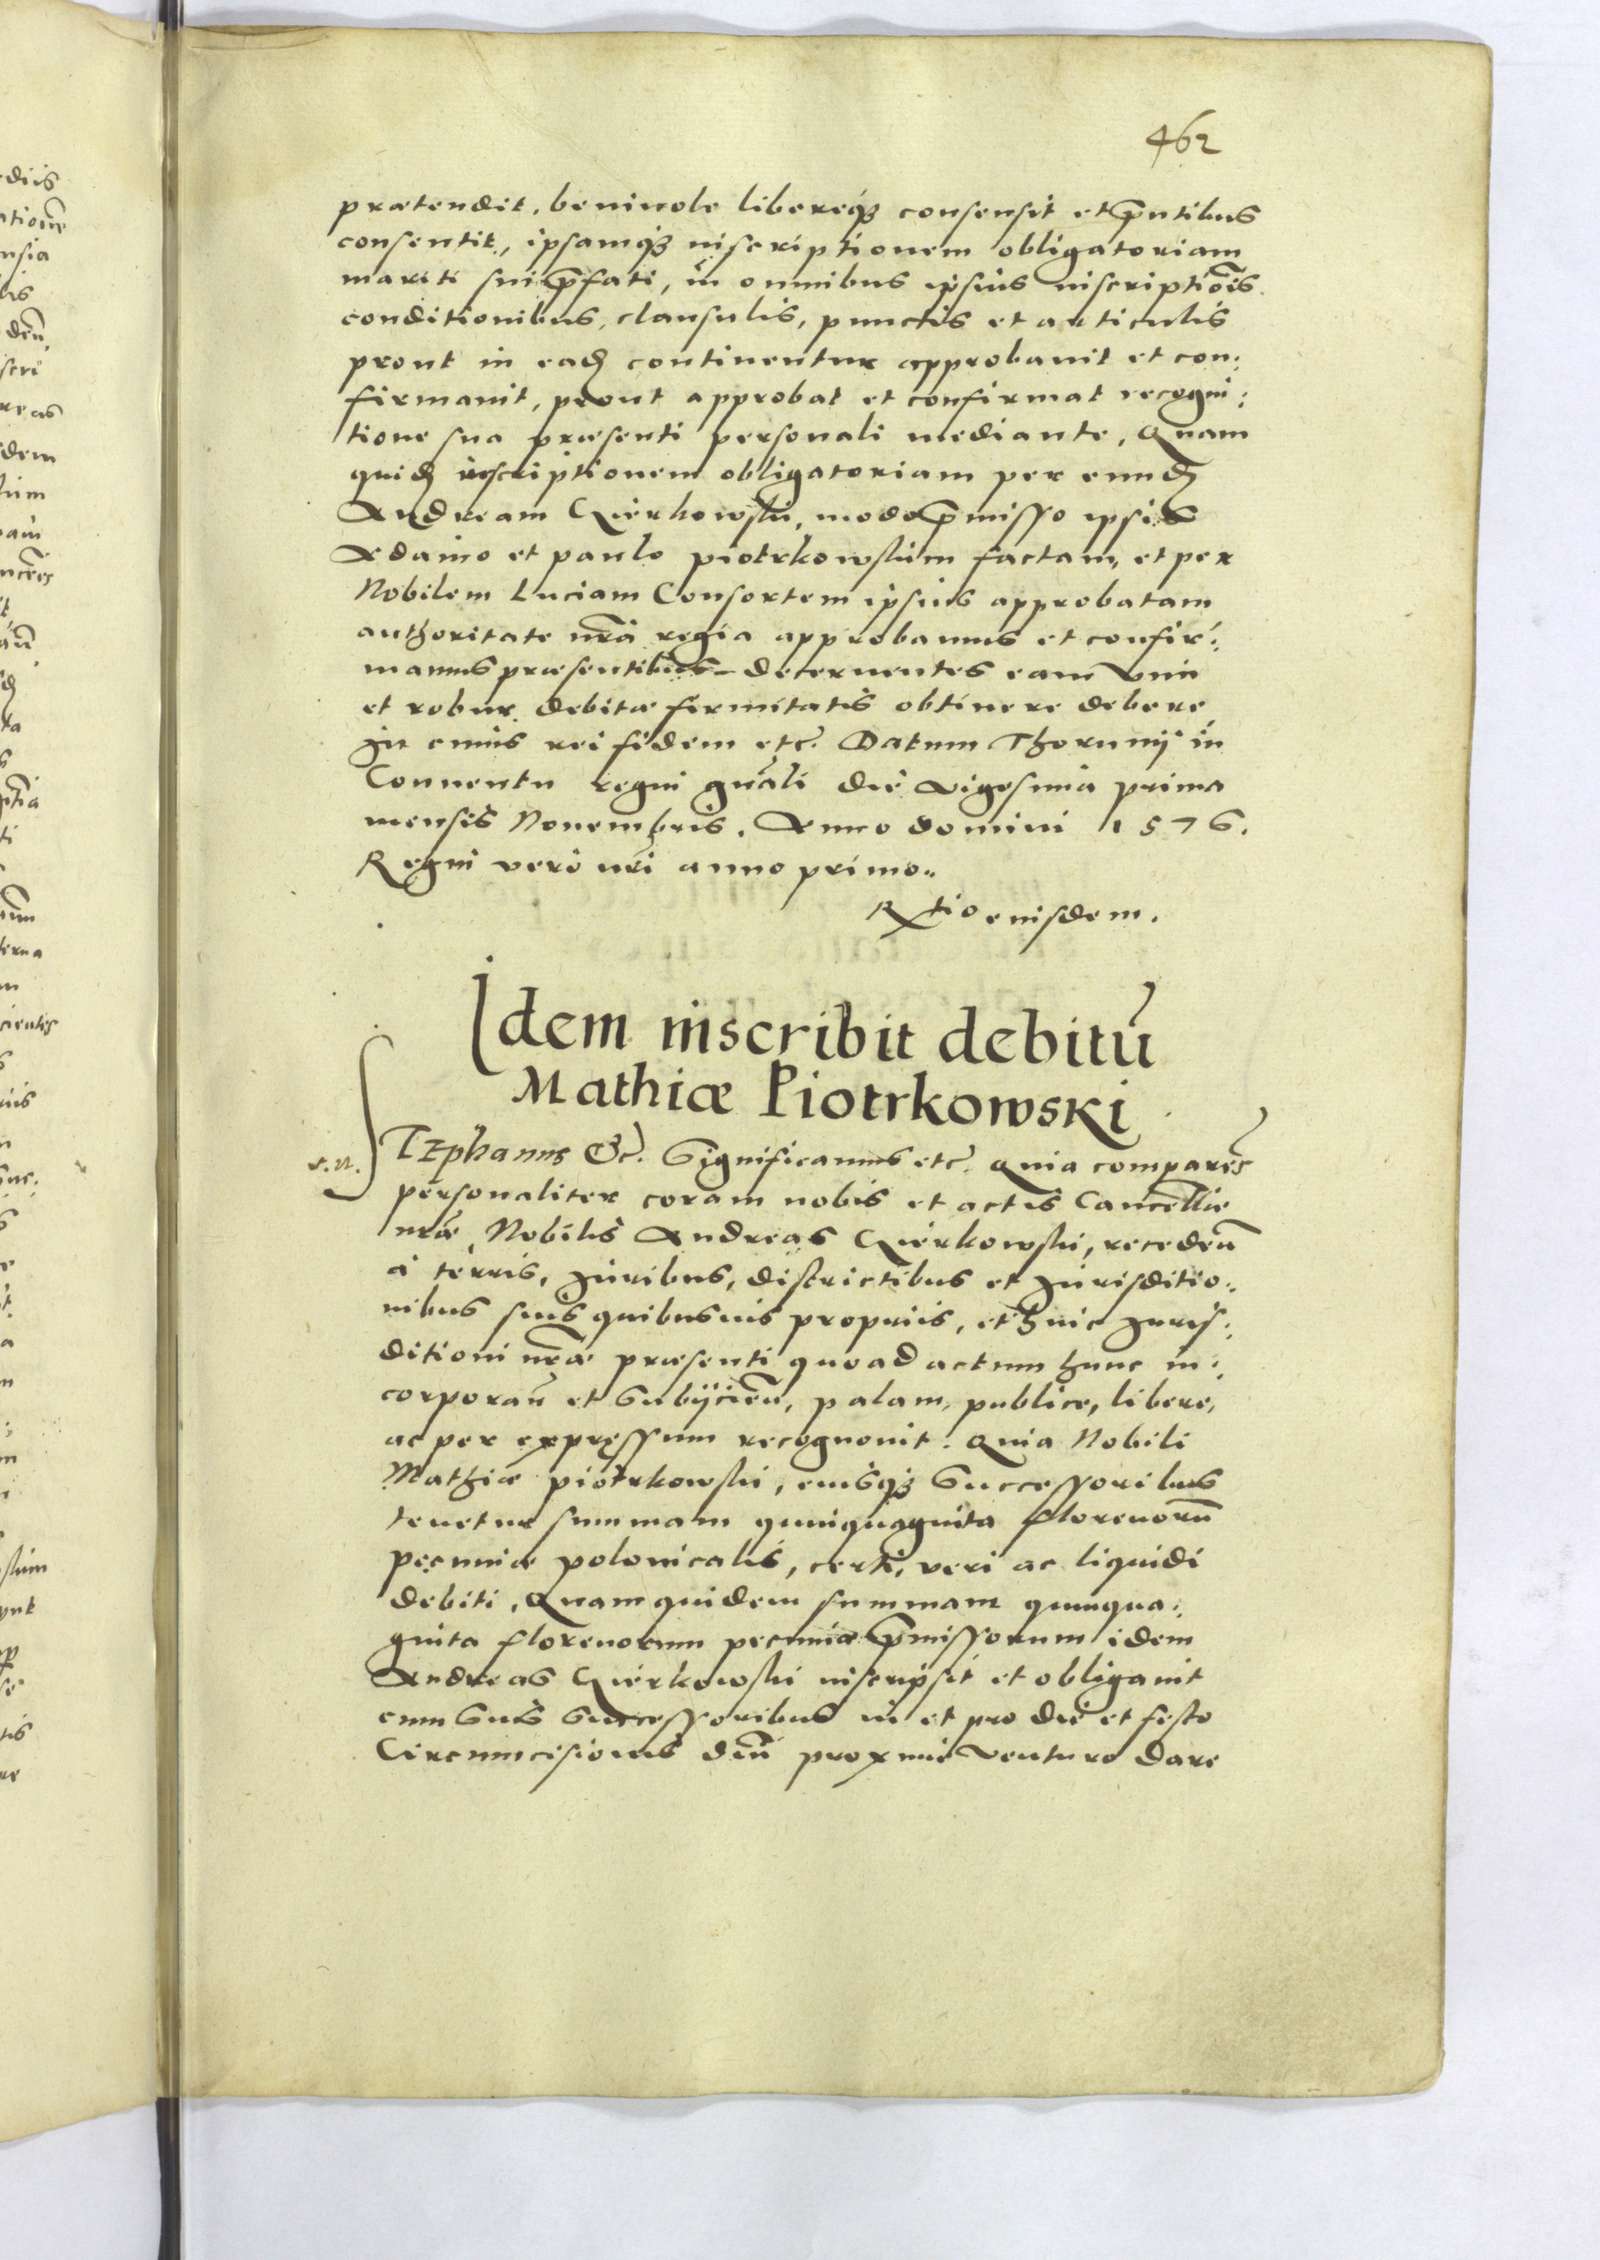 462
prætendit, beniuole libereq₃ consensit et p̄ntibus
consentit, ipsamq₃ inscriptionem obligatoriam
mariti sui p̄fati, in omnibus ipsius inscriptiōis
conditionibus, clausulis, punctis et articulis
prout in eadē continentur approbauit et con:
firmauit, prout approbat et confirmat recogni:
tione sua præsenti personali mediante, Quam
quidē inscriptionem obligatoriam per eundē
Andream Czierkowski, modo p̄misso ipsis
Adamo et paulo piotrkowskim factam, et per
Nobilem Luciam Consortem ipsius approbatam
authoritate nrā regia approbamus et confir:
mamus præsentibus decernentes eam vim
et robur debitæ firmitatis obtinere debere
In cuius rei fidem etc. Datum Thorunij in
Conuentu regni gn̄ali die vigesima prima
mensis Nouembris. Anno domini 1576.
Regni vero nr̄i anno primo.
Rtio eiusdem.
Idem inscribit debitū
Mathiæ Piotrkowski
STEphanus &c. Significamus etc. Quia comparēs
personaliter coram nobis et actis Cancellæ
nræ, Nobilis Andreas Czierkowski, recedeñ
à terris, Iuribus, districtibus et Iurisditio:
nibus suis quibusuis propriis, et huic Iuris:
ditioni nr̄æ præsenti quoad actum hunc in:
corporañ et subijcieñ, palam, publice, libere,
ac per expressum recognouit. Quia Nobili
Mathiæ piotrkowski, eiusq₃ Successoribus
tenetur summam quinquaginta florenorū
pecuniæ polonicalis, certi, veri ac liquidi
debiti, Quam quidem summam quinqua:
ginta florenorum pecuniæ p̄missorum idem
Andreas Czierkowski inscripsit et obligauit
cum suis successoribus in et pro die et festo
Circumcisionis dni proxime venturo dare